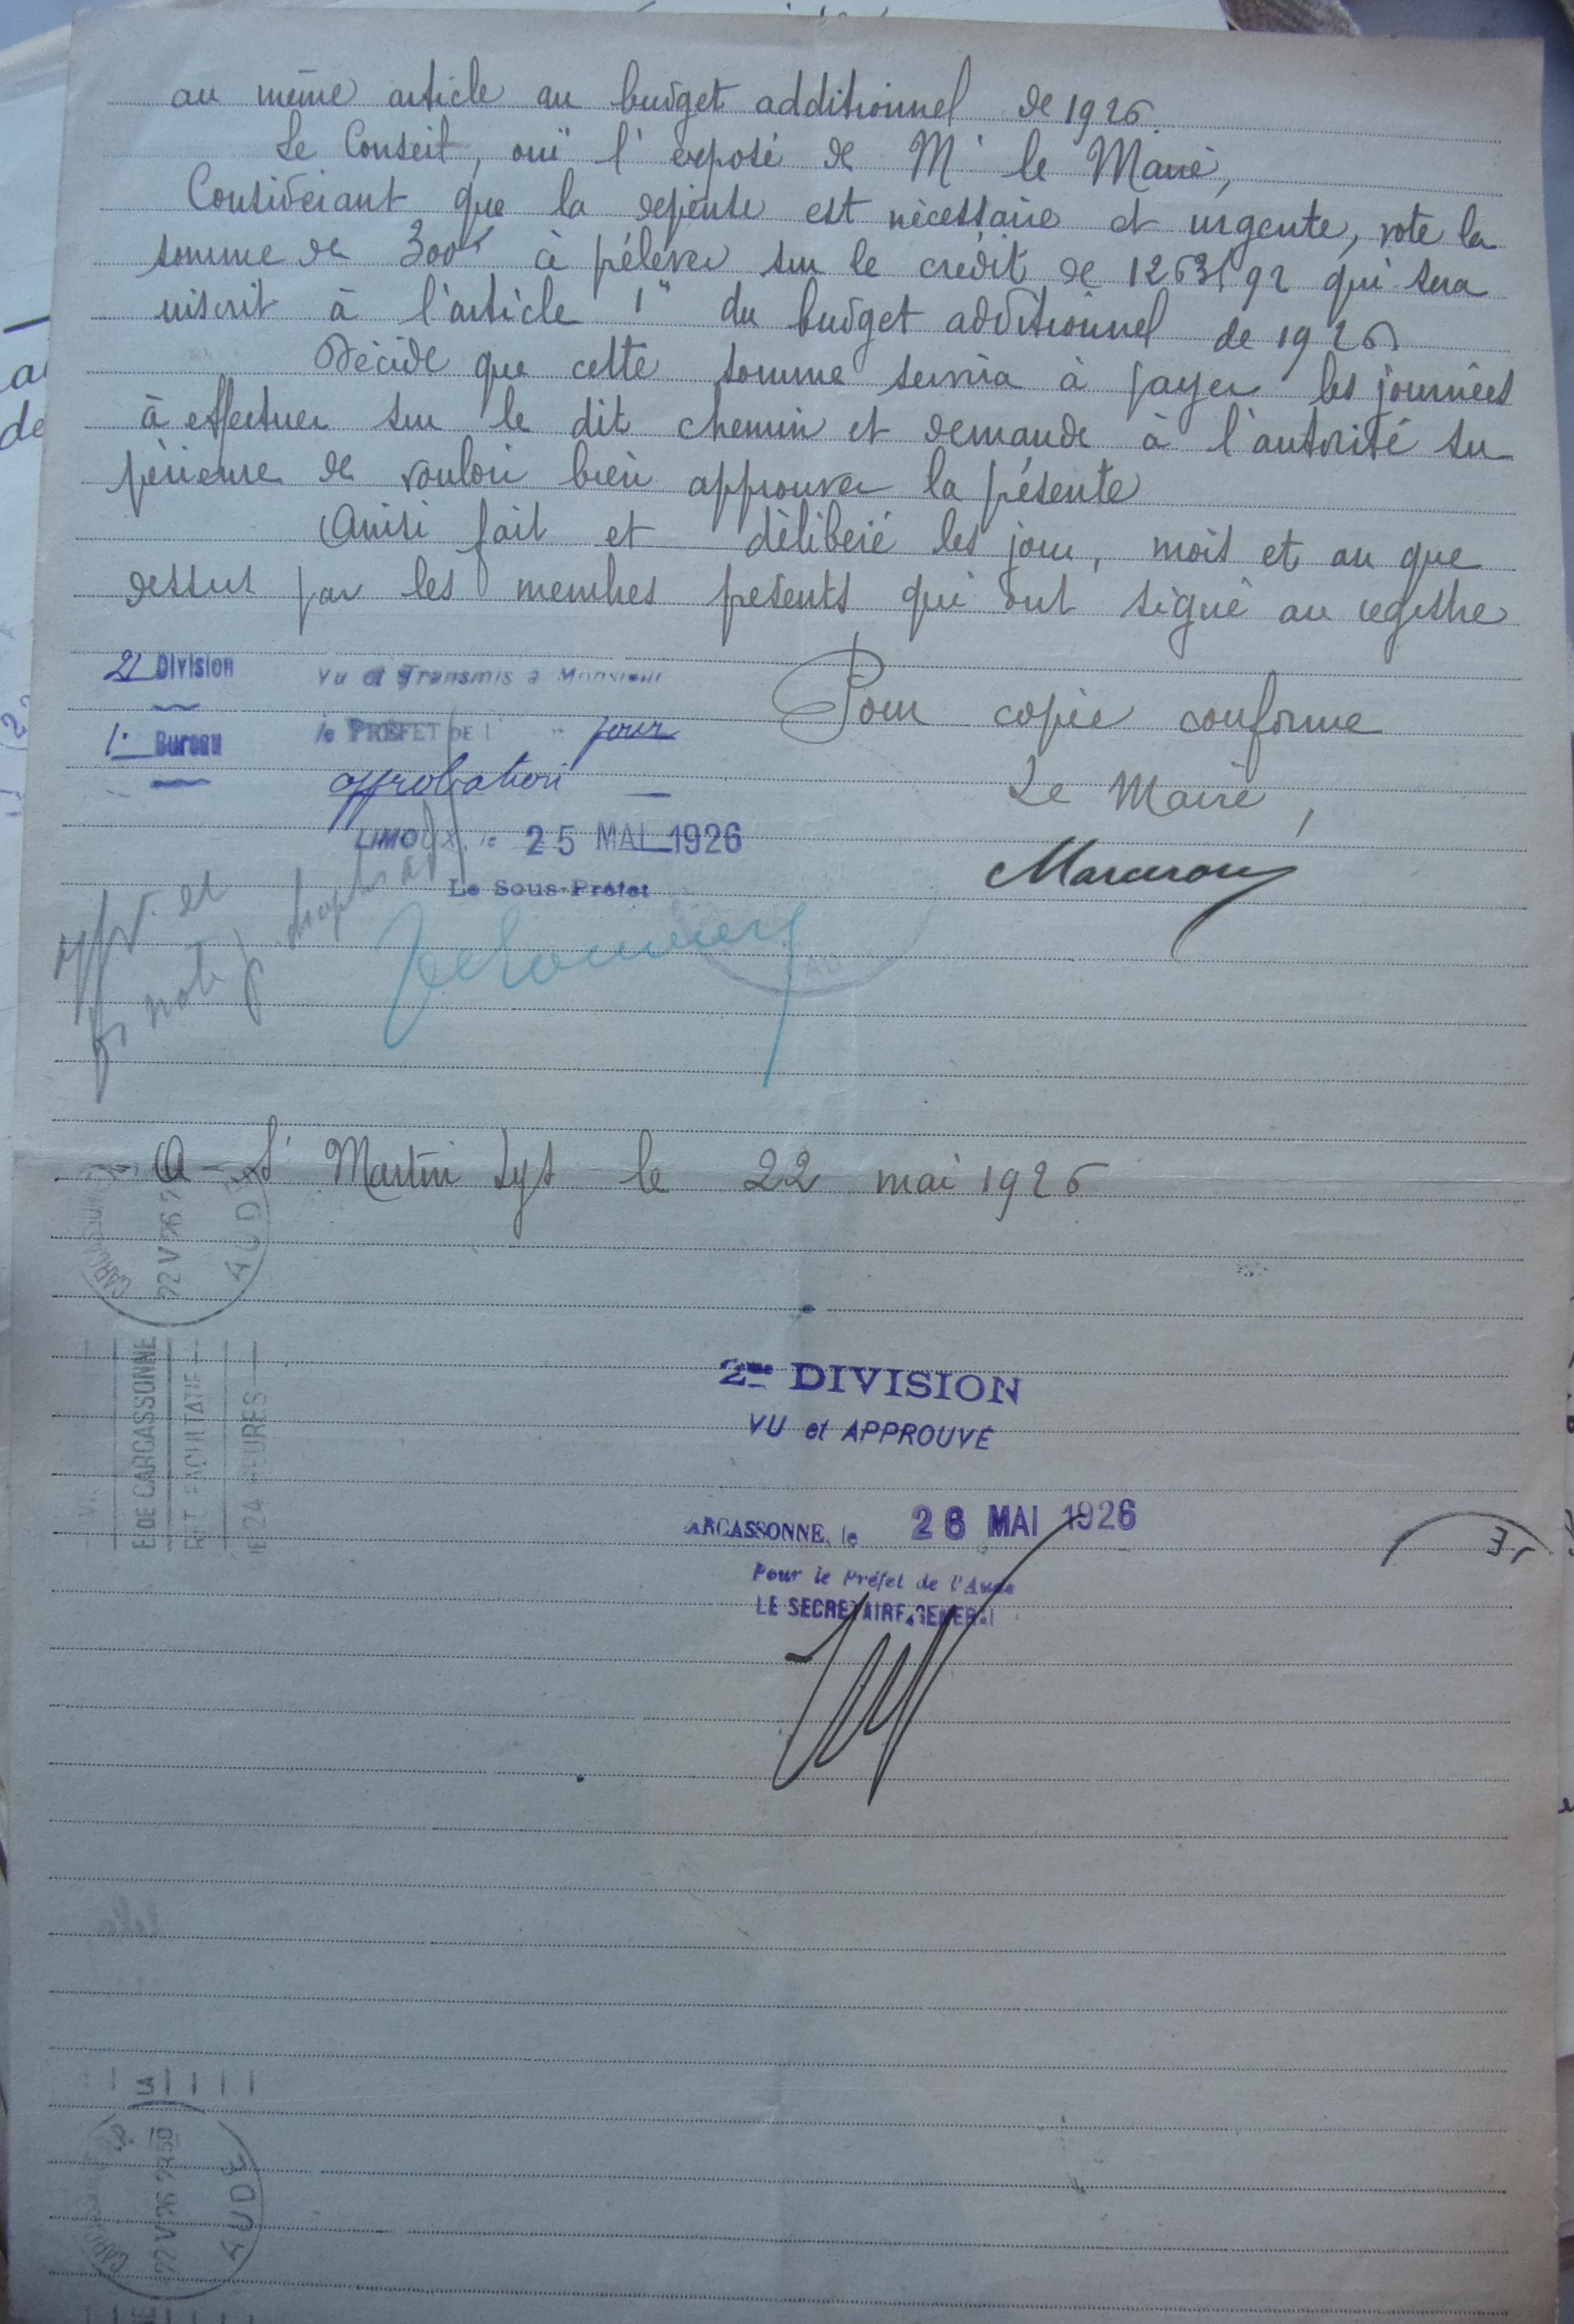 au même article au budget additionnel de 1926.
Le Conseil, ouï l'exposé de Mr le Maire,
Considérant que la dépense est nécessaire et urgente, vote la
somme de 300f à prélever sur le crédit de 1263f92 qui sera
inscrit à l'article 1er du budget additionnel de 1926
Décide que cette somme servira à payer les journées
à effectuer sur le dit chemin et demande à l'autorité su
périeure de vouloir bien approuver la présente
Ainsi fait et délibéré les jour, mois et an que
dessus par les membres présents qui ont signé au registre
2e Division
1er Bureau
Vu et Transmis à Monsieur
le PRÉFET DE l' pour
approbation
LIMOUX, le 25 MAI 1926
Le Sous-Préfet
Pour copie conforme
Le Maire,
A St Martin Lys le 22 mai 1926
AUDE
22 V 26
E DE CARCASSONNE
24 HEURES
2me DIVISION
VU et APPROUVÉ
ARCASSONNE, le 26 MAI 1926
Pour le Préfet de l'Aude
LE SECRETAIRE GENERAL
LA
AUDE
22 V 26